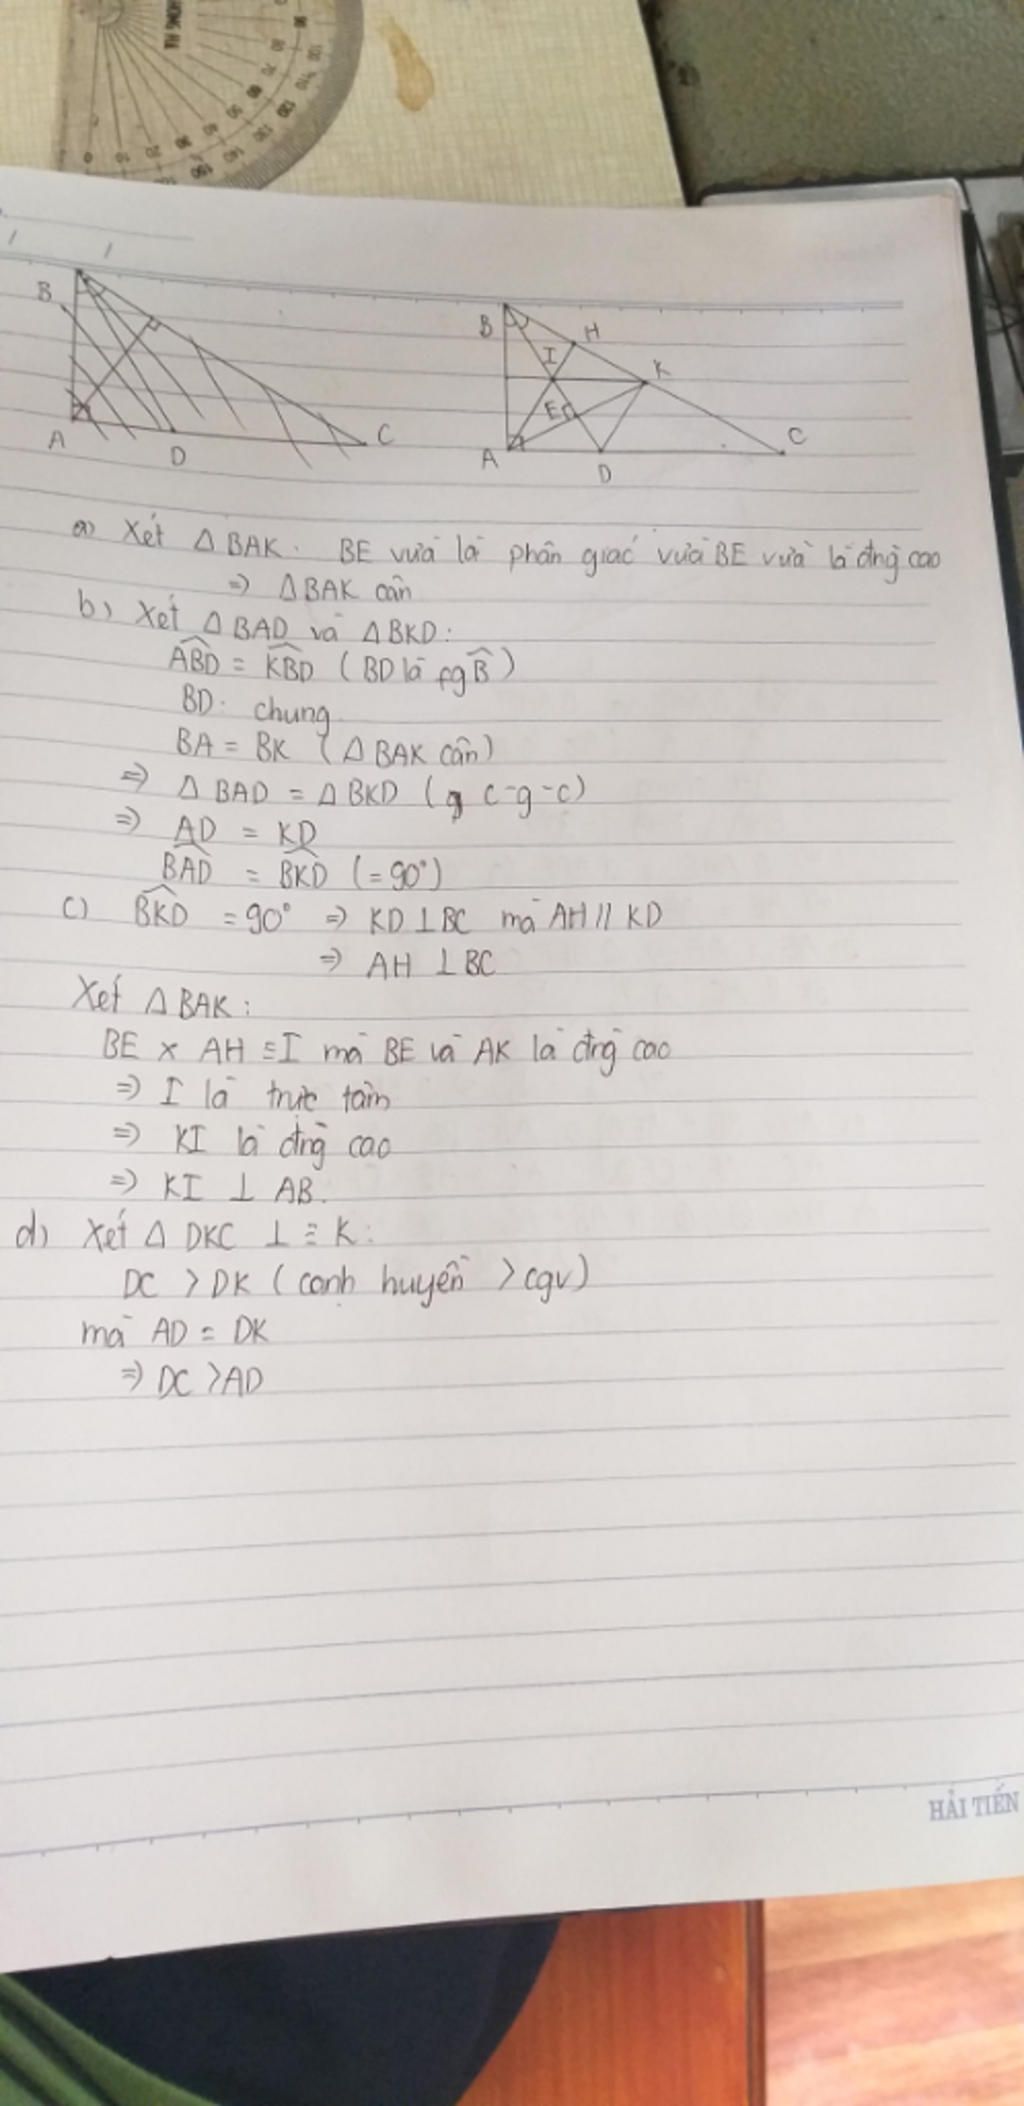 B
A
D
C
B
H
I
K
E
A
D
C
a) Xét △BAK. BE vừa là phân giác vừa BE vừa là đng cao
=> △BAK cân
b) Xét △BAD và △BKD:
ABD = KBD (BD là pg B)
BD: chung
BA = BK (△BAK cân)
=> △BAD = △BKD (g c-g-c)
=> AD = KD
BAD = BKD (= 90°)
c) BKD = 90° => KD ⊥ BC mà AH // KD
=> AH ⊥ BC
Xét △BAK:
BE x AH ≡ I mà BE và AK là đng cao
=> I là trực tâm
=> KI là đng cao
=> KI ⊥ AB.
d) Xét △ DKC ⊥ ≡ K:
DC > DK (cạnh huyền > cgv)
mà AD = DK
=> DC > AD
HẢI TIẾN